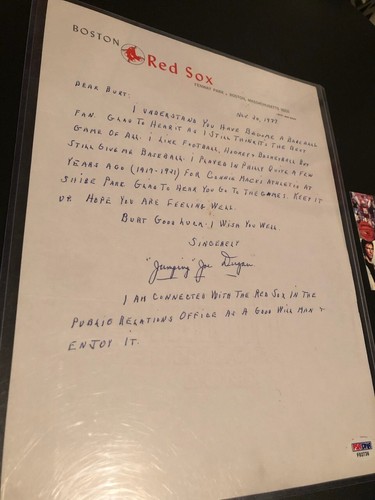 BOSTON
Red Sox
FENWAY PARK • BOSTON, MASSACHUSETTS
NOV. 30, 1977
DEAR BURT:
I UNDERSTAND YOU HAVE BECOME A BASEBALL
FAN. GLAD TO HEAR IT AS I STILL THINK IT'S THE BEST
GAME OF ALL. I LIKE FOOTBALL, HOCKEY & BASKETBALL BUT
STILL GIVE ME BASEBALL. I PLAYED IN PHILLY QUITE A FEW
YEARS AGO (1917-1921) FOR CONNIE MACKS ATHLETICS AT
SHIBE PARK. GLAD TO HEAR YOU GO TO THE GAMES. KEEP IT
UP. HOPE YOU ARE FEELING WELL.
BURT GOOD LUCK. I WISH YOU WELL.
SINCERELY
"Jumping" Joe Dugan
I AM CONNECTED WITH THE RED SOX IN THE
PUBLIC RELATIONS OFFICE AS A GOOD WILL MAN &
ENJOY IT.
PSA/DNA